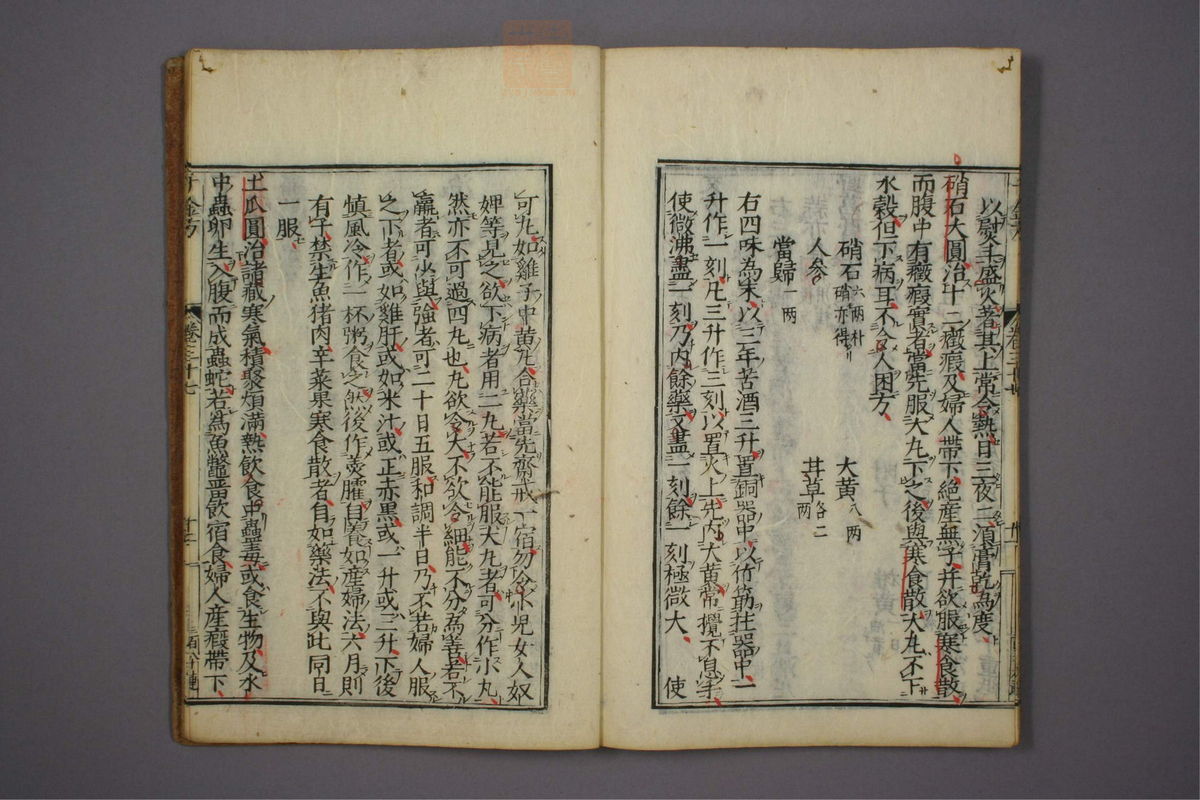 以熨斗盛火著其上常令熱日三夜二須膏乾為度
硝石大圓治十二癥瘕及婦人帶下絶産無子并欲服寒食散
而腹中有癥瘕實者當先服大丸下之後與寒食散大丸不下
水穀但下病耳不令人困方
硝石六兩朴硝亦得 大黄八兩
人參 甘草各二兩
當歸一兩
右四味為末以三年苦酒三升置銅器中以竹筯拄器中一
升作一刻凡三升作三刻以置火上先内大黄常攪不息
使微沸盡一刻乃内餘藥又盡一刻餘一刻極微大 使
可丸如雞子中黄凡合藥當先齋戒一宿勿令小兒女人奴
婢等見之欲下病者用二丸若不能服大丸者可分作小丸
然亦不可過四丸也丸欲令大不欲令細能不分為善若不
羸者可少與強者可二十日五服和調半日乃下若婦人服
之下者或如雞肝或如米汁或正赤黒或一升或三升下後
慎風冷作一杯粥食之然後作羹臛自養如産婦法六月則
有子禁生魚猪肉辛菜果寒食散者自如藥法不與此同日
一服
土瓜圓治諸臟寒氣積聚煩滿熱飲食中蟲毒或食生物及水
中蟲卵生入腹而成蟲蛇若為魚鼈留飲宿食婦人産瘕帶下
千金方 卷三十七 十二